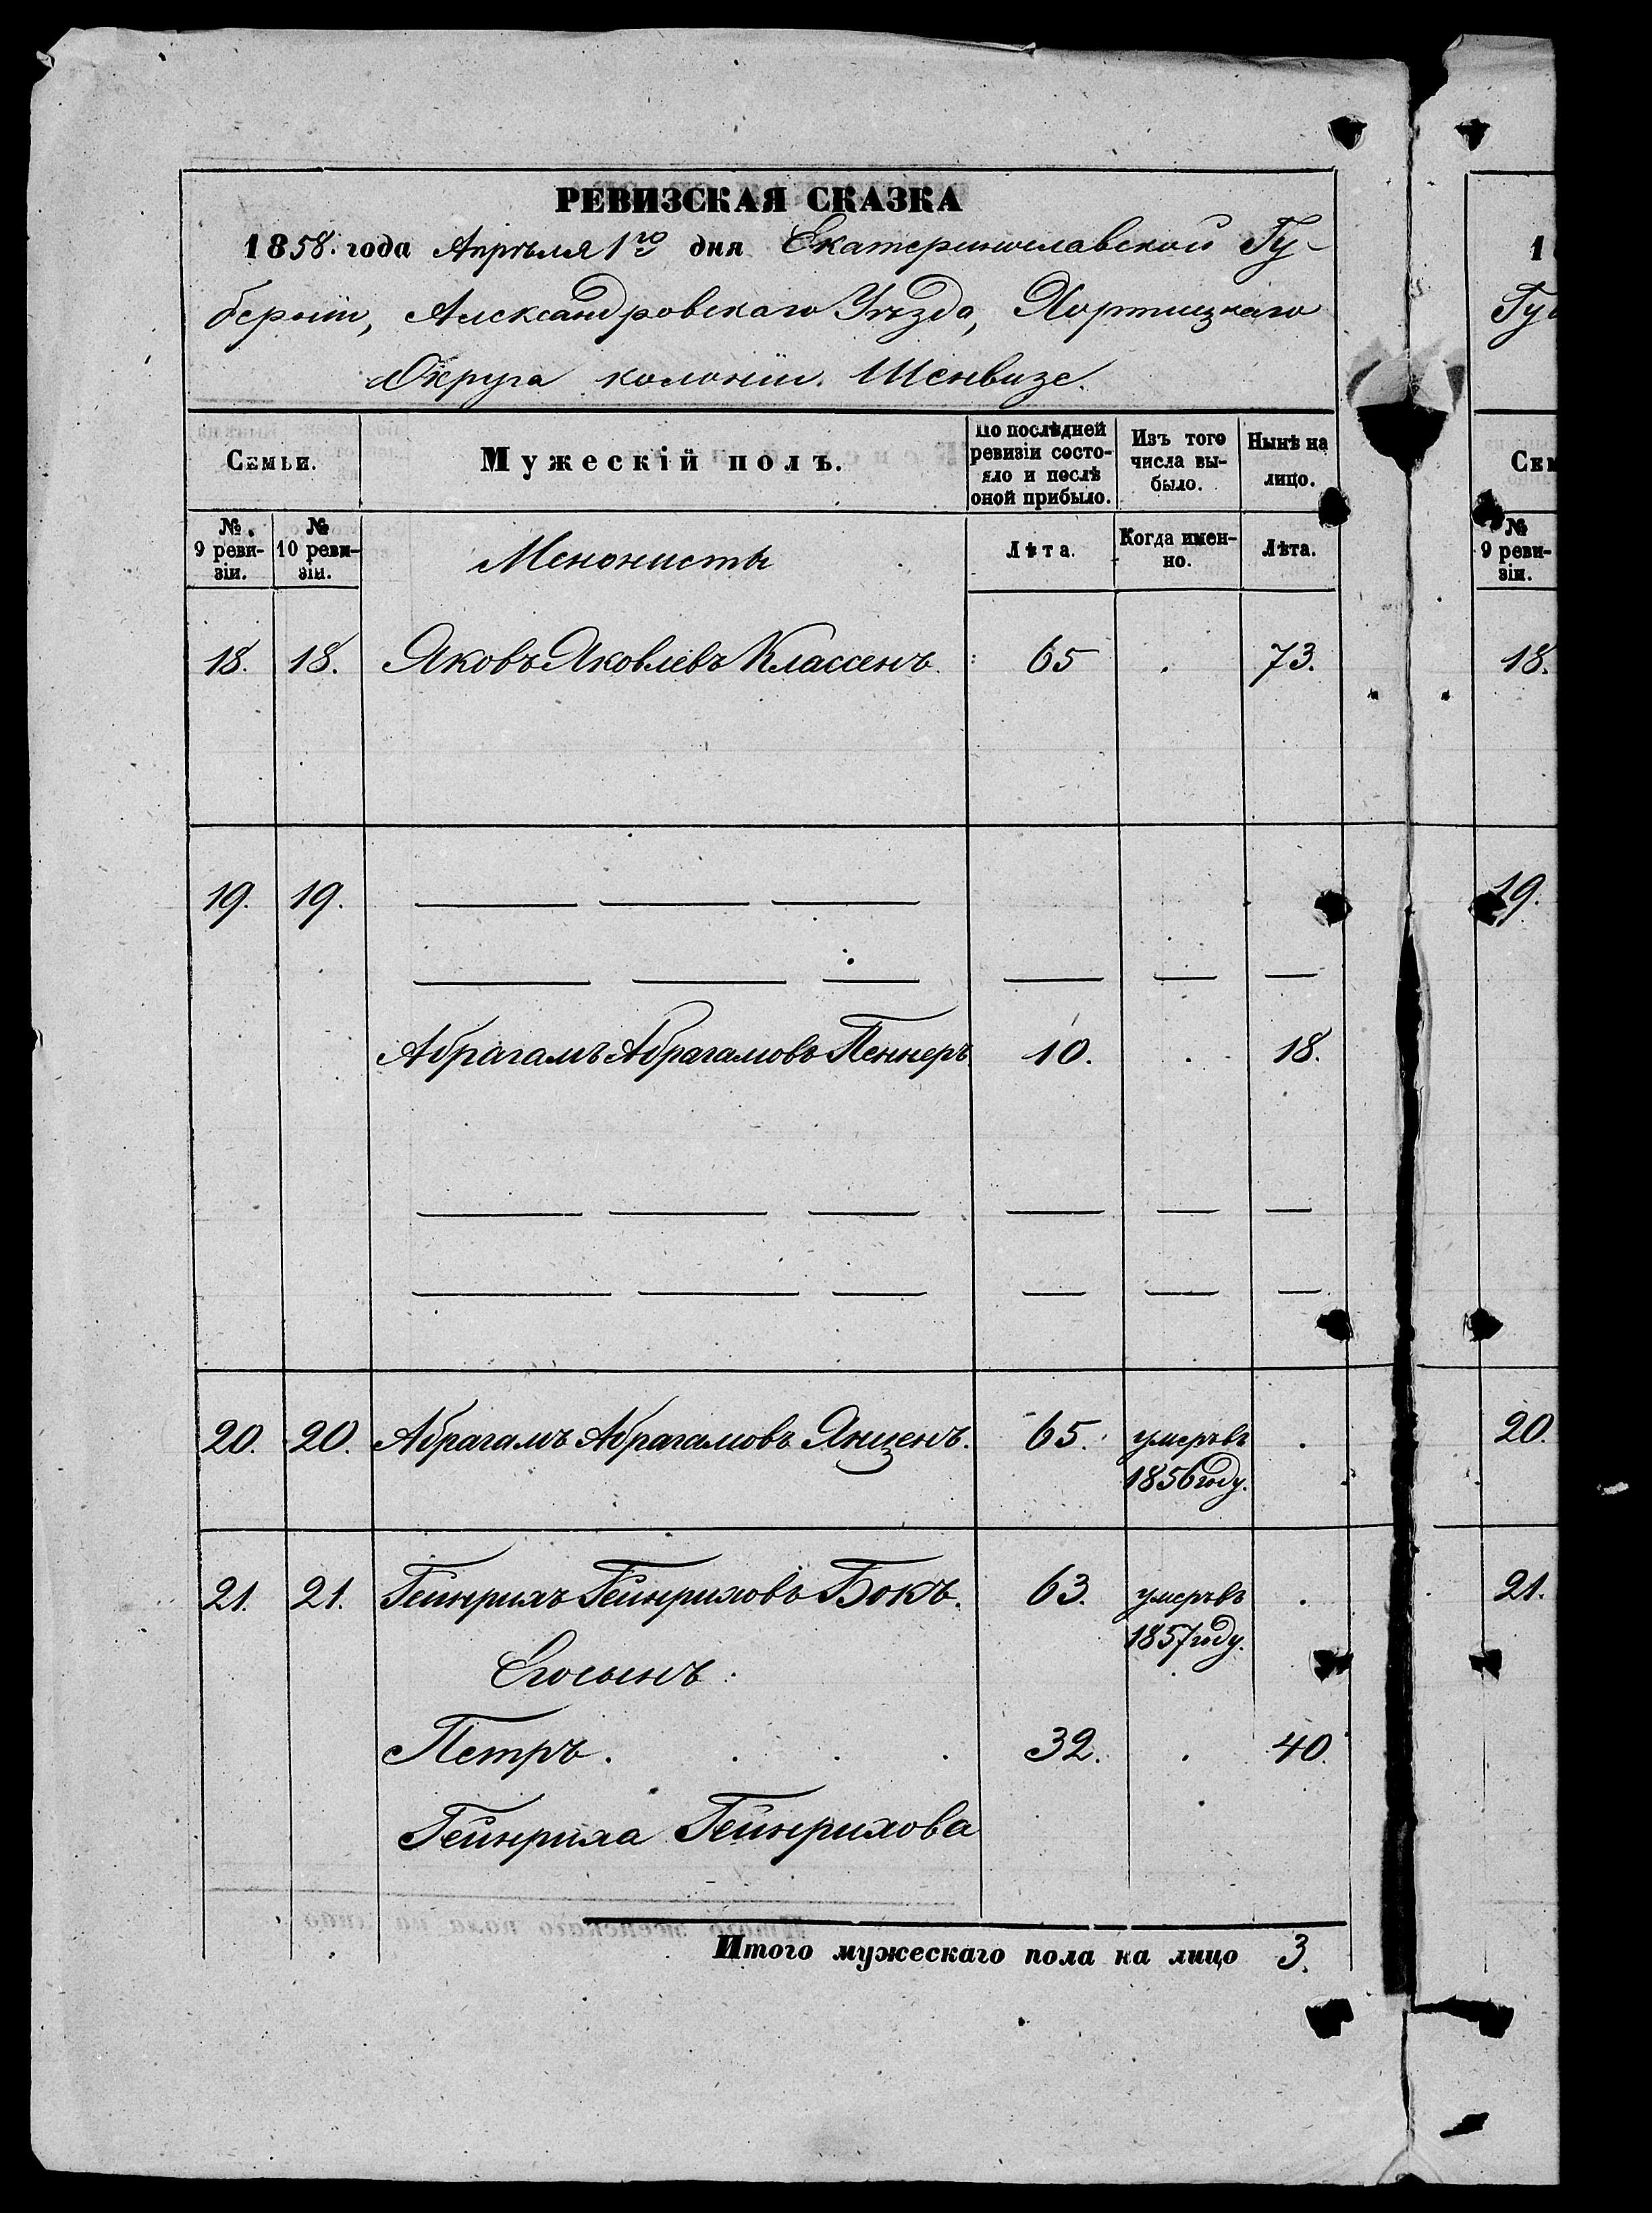 РЕВИЗСКАЯ СКАЗКА
1858. года Апрѣля 1го дня Екатеринославской Гу-
берніи, Александровскаго Уѣзда, Хортицкаго
Округа колоніи Шенвизе.
Семьи.
Мужескій полъ.
По послѣдней ревизіи состояло и послѣ оной прибыло.
Изъ того числа выбыло.
Нынѣ на лицо.
№ 9 ревизіи.
№ 10 ревизіи.
Менонисты
Лѣта.
Когда именно.
Лѣта.
18. 18. Яковъ Яковлевъ Классенъ. 65 . 73.
19. 19. — — —
— — — — — —
Абрагамъ Абрагамовъ Пеннеръ 10. . 18.
— — — — — —
— — — — — —
20. 20. Абрагамъ Абрагамовъ Янценъ. 65. умеръ въ .
1856 году.
21. 21. Гейнрихъ Гейнриховъ Бокъ. 63. умеръ въ .
1857 году.
Его сынъ:
Петръ. . . . 32. . 40.
Гейнриха Гейнрихова
Итого мужескаго пола на лицо 3.
1
Гу
Сем
№ 9 ревизіи.
18.
19.
20.
21.